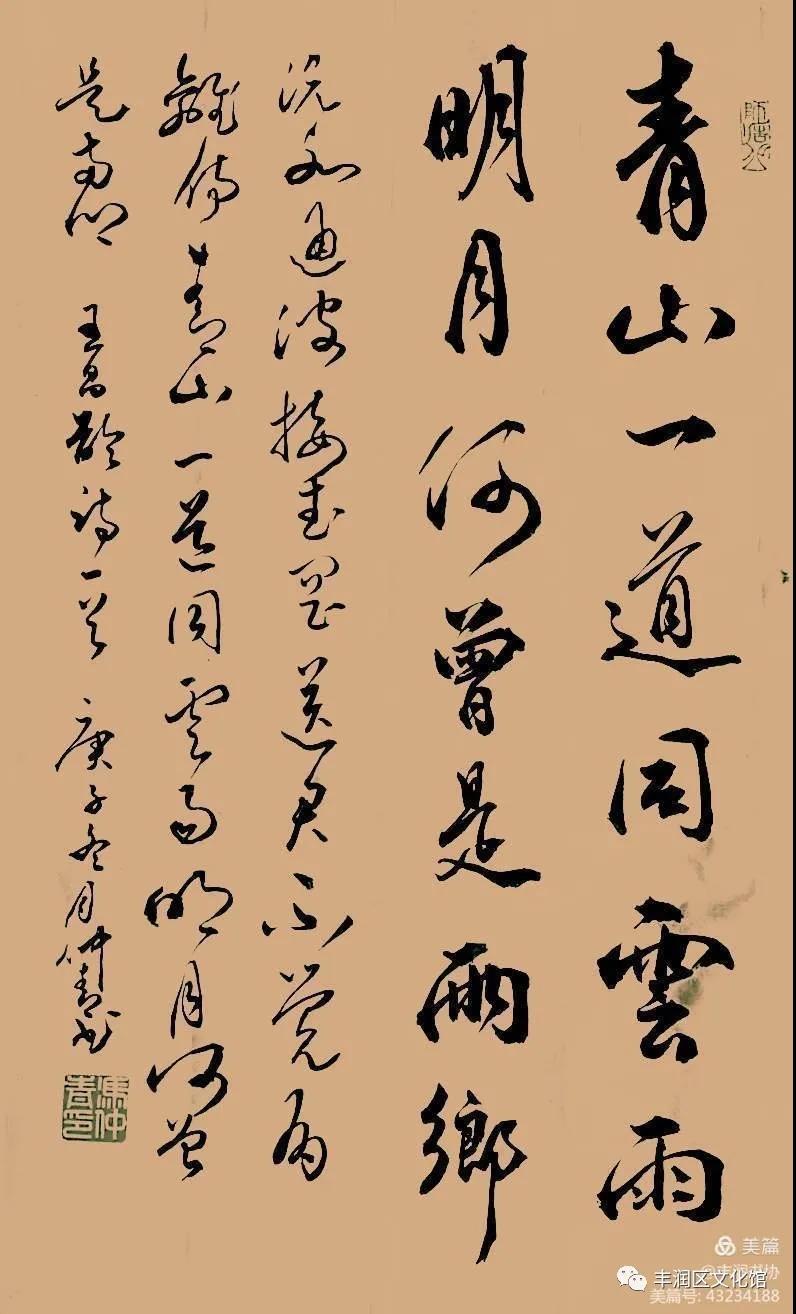 青山一道同雲雨
明月何曾是兩鄉
沅水通波接武岡送君不覺有
離傷青山一道同雲雨明月何曾
是兩鄉 王昌齡詩一首 庚子冬月仲春书
馮仲春印
美篇
@丰润书协
丰润区文化馆
美篇号: 43234188